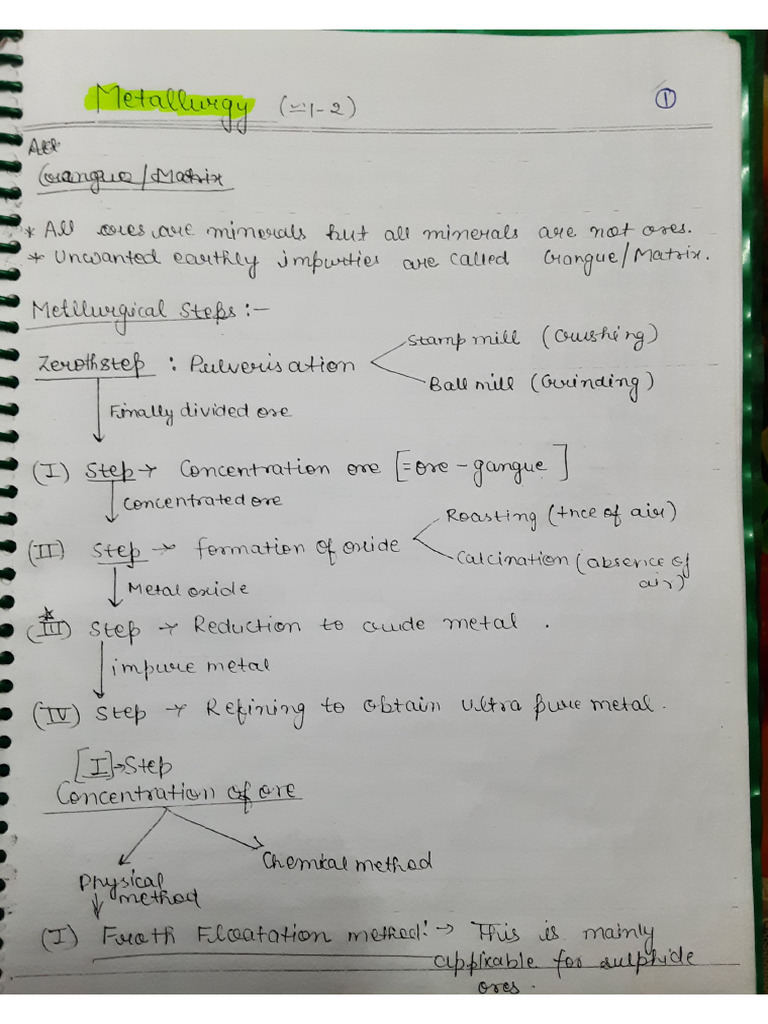 Metallurgy (=1-2)
①
Gangue/Matrix
* All ores are minerals but all minerals are not ores.
* Unwanted earthly impurties are called Gangue/Matrix.
Metllurgical Steps:-
Stamp mill (Crushing)
Zeroth step : Pulverisation
Ball mill (Grinding)
Finally divided ore
(I) Step → Concentration ore [=ore - gangue]
Concentrated ore
Roasting (+nce of air)
(II) Step → formation of oxide
Calcination (absence of
air)
Metal oxide
(III) Step → Reduction to crude metal .
impure metal
(IV) Step → Refining to obtain ultra pure metal.
[I]→Step
Concentration of ore
Chemical method
Physical
method
(I) Froth Floatation method:→ This is mainly
applicable for sulphide
ores.